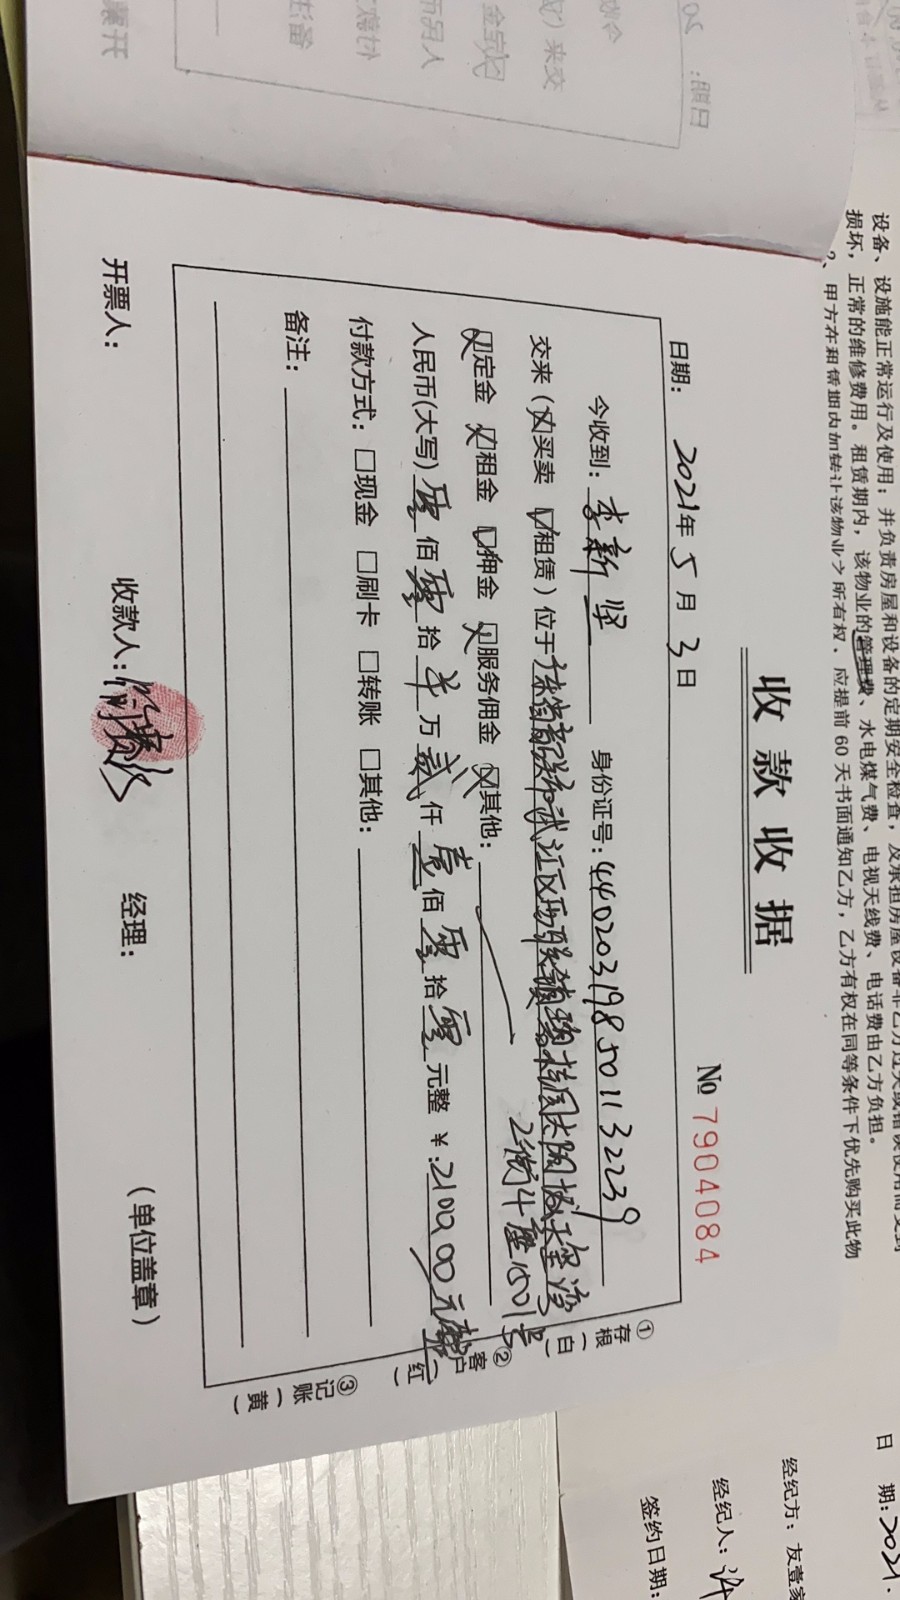 收款收据
No 7904084
日期： 2021年 5 月 3 日
今收到：李新坚 身份证号：440203198501132239
交来（☒买卖 ☑租赁）位于广东省韶关市武江区西联镇碧桂园太阳城天玺湾
2街4座1501号
☒定金 ☒租金 ☑押金 ☒服务佣金 ☒其他：
人民币(大写) 零 佰 零 拾 万 贰 仟 壹 佰 零 拾 零 元整 ￥：2100.00元整
付款方式：□现金 □刷卡 □转账 □其他：
备注：
开票人： 收款人： 经理： （单位盖章）
①存根（白）
②客户（红）
③记账（黄）
设备、设施能正常运行及使用；并负责房屋和设备的定期安全检查，及承担房屋设备非乙方过失或错误使用而受到
损坏，正常的维修费用。租赁期内，该物业的管理费、水电煤气费、电视天线费、电话费由乙方负担。
2、甲方在租赁期内如转让该物业之所有权，应提前 60 天书面通知乙方，乙方有权在同等条件下优先购买此物
日 期：2021.
经纪方：友壹家
经纪人：许
签约日期：